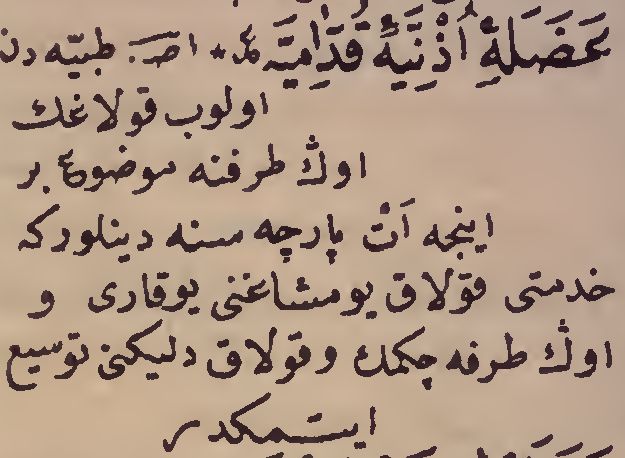 عَضَلَهٔ اُذْنِيَّهٔ قُدَّامِيَّه ع * اصـ طبيّه دن
اولوب قولاغك
اوڭ طرفنه موضوع بر
اينجه اَت پارچه سنه دينلوركه
خدمتى قولاق يومشاغنى يوقارى و
اوڭ طرفه چكمك وقولاق دليكنى توسيع
ايتمكدر